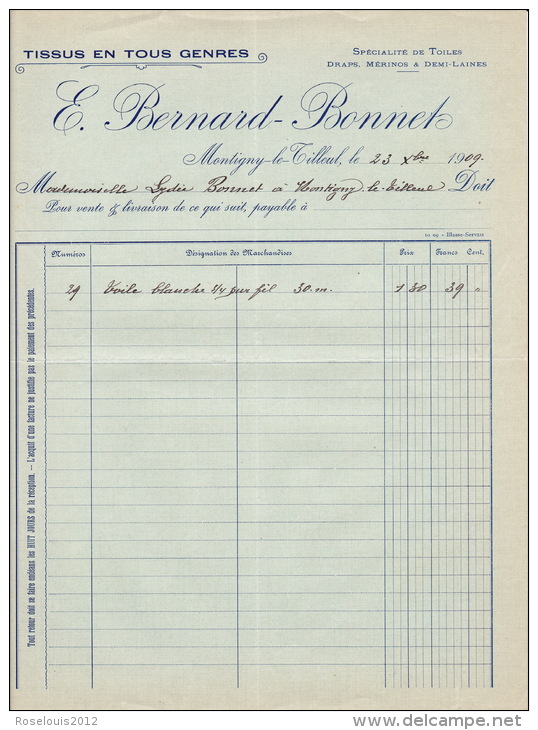 TISSUS EN TOUS GENRES
Spécialité de Toiles
Draps, Mérinos & Demi-Laines
E. Bernard-Bonnet
Montigny-le-Tilleul, le 23 Xbre 1909.
Mademoiselle Lydie Bonnet à Montigny-le-Tilleul Doit
Pour vente & livraison de ce qui suit, payable à
10 09 - Blasse-Servais
Numéros Désignation des Marchandises Prix Francs Cent.
29 Toile blanche 4/4 pur fil 30.m. 1 30 39 "
Tout retour doit se faire endéans les HUIT JOURS de la réception. — L'acquit d'une facture ne justifie pas le paiement des précédentes.
Roselouis2012
delcampe.net